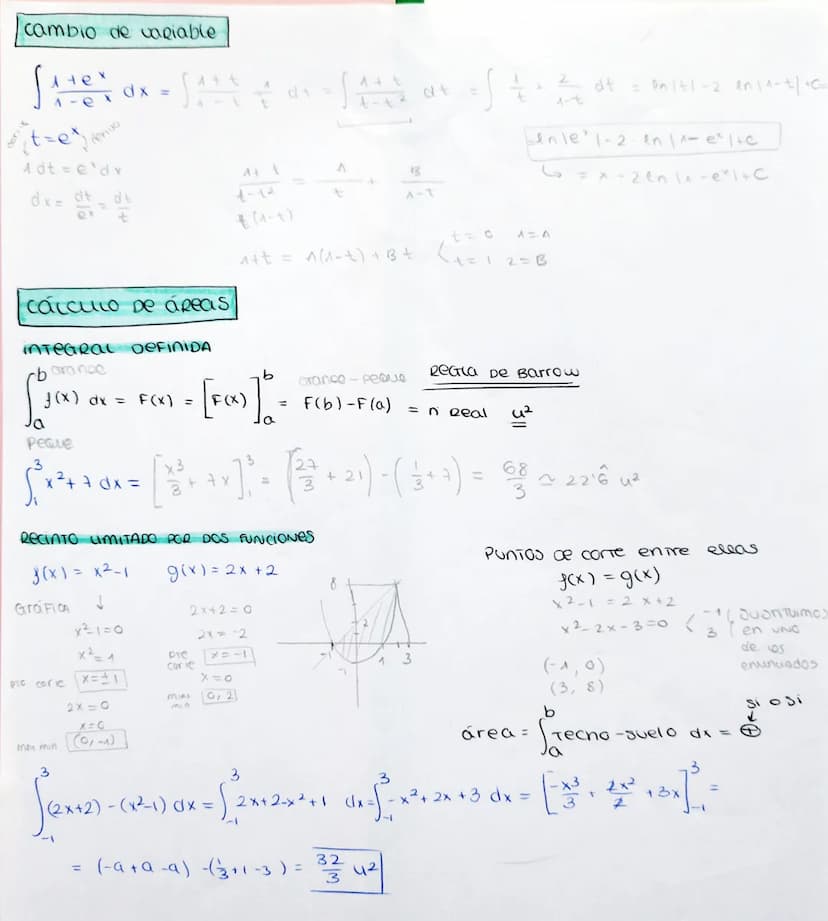 cambio de variable
∫ 1+eˣ/1-eˣ dx = ∫ 1+t/1-t · 1/t dt = ∫ 1+t/t-t² dt = ∫ 1/t + 2/1-t dt = ln|t|-2 ln|1-t|+C=
t=eˣ
ln|eˣ|-2·ln|1-eˣ|+C
1dt=eˣdx
↳ = x-2ln|1-eˣ|+C
dx= dt/eˣ = dt/t
1+t/t-t² = A/t + B/1-t
t(1-t)
1+t = A(1-t)+Bt
t=0 1=A
t=1 2=B
CÁLCULO DE ÁREAS
INTEGRAL DEFINIDA
grande
grande-peque
REGLA DE BARROW
∫ₐᵇ f(x) dx = F(x) = [F(x)]ₐᵇ = F(b)-F(a) = n Real u²
peque
∫₁³ x²+7 dx = [x³/3 + 7x]₁³ = (27/3 + 21) - (1/3 + 7) = 68/3 ≃ 22'6̂ u²
RECINTO LIMITADO POR DOS FUNCIONES
f(x) = x²-1 g(x) = 2x+2
Gráfica ↓
x²-1=0
x²=1
pto corte x=±1
2x=0
x=0
max min (0,-1)
2x+2=0
2x=-2
pto corte x=-1
x=0
max min 0,2
8
2
-1 1 3
PUNTOS DE CORTE ENTRE ELLAS
f(x) = g(x)
x²-1 = 2x+2
x²-2x-3=0 < -1 3
sustituimos
en uno
de los
enunciados
(-1, 0)
(3, 8)
si o si
área = ∫ₐᵇ Techo-suelo dx = ⊕
∫₋₁³ (2x+2)-(x²-1) dx = ∫₋₁³ 2x+2-x²+1 dx = ∫₋₁³ -x²+2x+3 dx = [-x³/3 + 2x²/2 + 3x]₋₁³ =
= (-9+9-9) -(1/3+1-3) = 32/3 u²